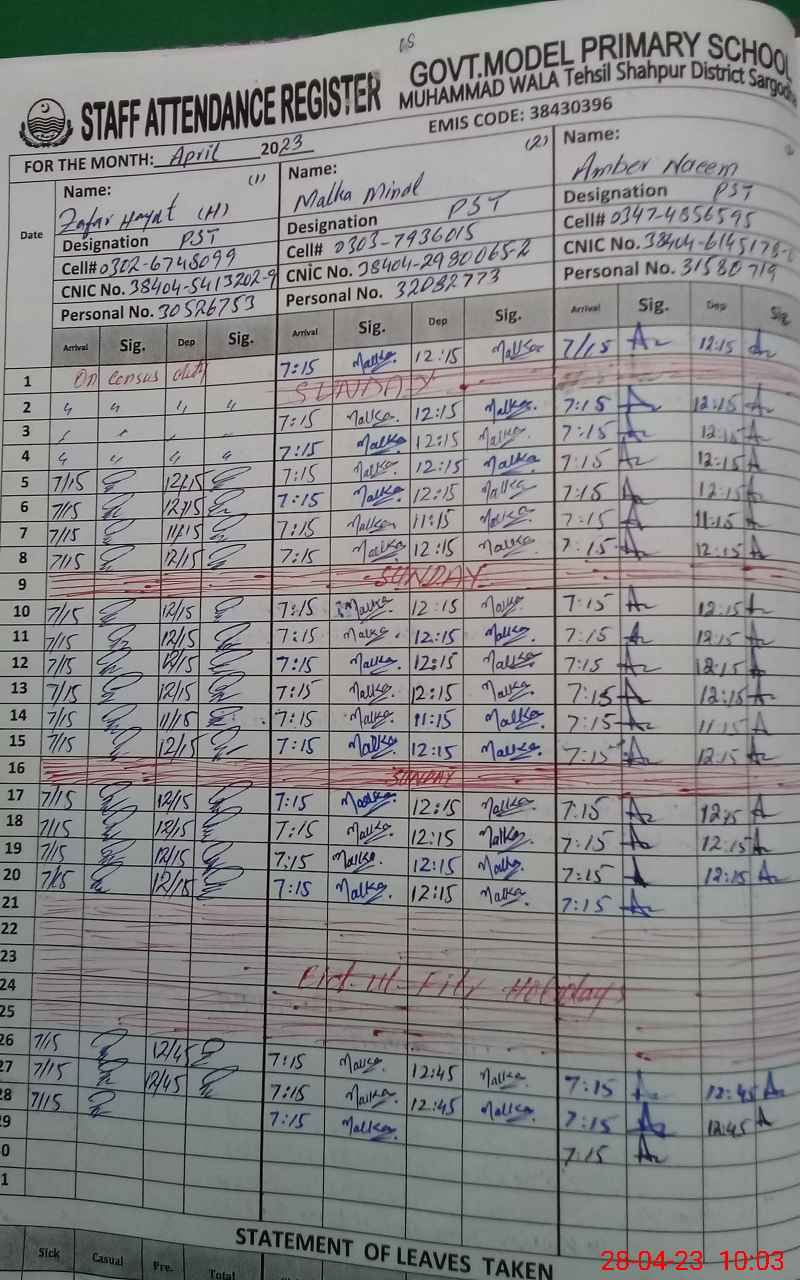 05
STAFF ATTENDANCE REGISTER GOVT.MODEL PRIMARY SCHOOL
MUHAMMAD WALA Tehsil Shahpur District Sargodha
EMIS CODE: 38430396
FOR THE MONTH: April 2023
Date
Name: (1)
Zafar Hayat (H)
Designation PST
Cell# 0302-6748099
CNIC No. 38404-5413202-9
Personal No. 30526753
Name: (2)
Malka Minal
Designation PST
Cell# 0303-7936015
CNIC No. 38404-2980065-2
Personal No. 32082773
Name:
Amber Naeem
Designation PST
Cell# 0347-4856595
CNIC No. 38404-6145178-
Personal No. 31580719
Arrival Sig. Dep Sig. Arrival Sig. Dep Sig. Arrival Sig. Dep Sig
1 On Census duty 7:15 Malka. 12:15 Malka 7/15 12:15
2 " " " " SUNDAY
3 7:15 Malka. 12:15 Malka. 7:15 12:15
4 " " " " 7:15 Malka 12:15 Malka 7:15 12:15
5 7/15 12/15 7:15 Malka. 12:15 Malka 7:15 12:15
6 7/15 12/15 7:15 Malka. 12:15 Malka 7:15 12:15
7 7/15 11/15 7:15 Malka 11:15 Malka 7:15 11:15
8 7/15 12/15 7:15 Malka 12:15 Malka. 7:15 12:15
9 SUNDAY
10 7/15 12/15 7:15 Malka 12:15 Malka 7:15 12:15
11 7/15 12/15 7:15 Malka. 12:15 Malka. 7:15 12:15
12 7/15 12/15 7:15 Malka. 12:15 Malka 7:15 12:15
13 7/15 12/15 7:15 Malka 12:15 Malka. 7:15 12:15
14 7/15 11/15 7:15 Malka. 11:15 Malka. 7:15 11:15
15 7/15 12/15 7:15 Malka. 12:15 Malka. 7:15 12:15
16 SUNDAY
17 7/15 12/15 7:15 Malka. 12:15 Malka. 7:15 12:15
18 7/15 12/15 7:15 Malka. 12:15 Malka. 7:15 12:15
19 7/15 12/15 7:15 Malka. 12:15 Malka 7:15 12:15
20 7/15 12/15 7:15 Malka. 12:15 Malka. 7:15
21
22
23
24
25
26 7/15 12/45 7:15 Malka. 12:45 Malka. 7:15 12:45
27 7/15 12/45 7:15 Malka. 12:45 Malka. 7:15 12:45
28 7/15 7:15 Malka. 7:15
29
0
1
STATEMENT OF LEAVES TAKEN
Sick Casual Pre. Total
28-04-23 10:03